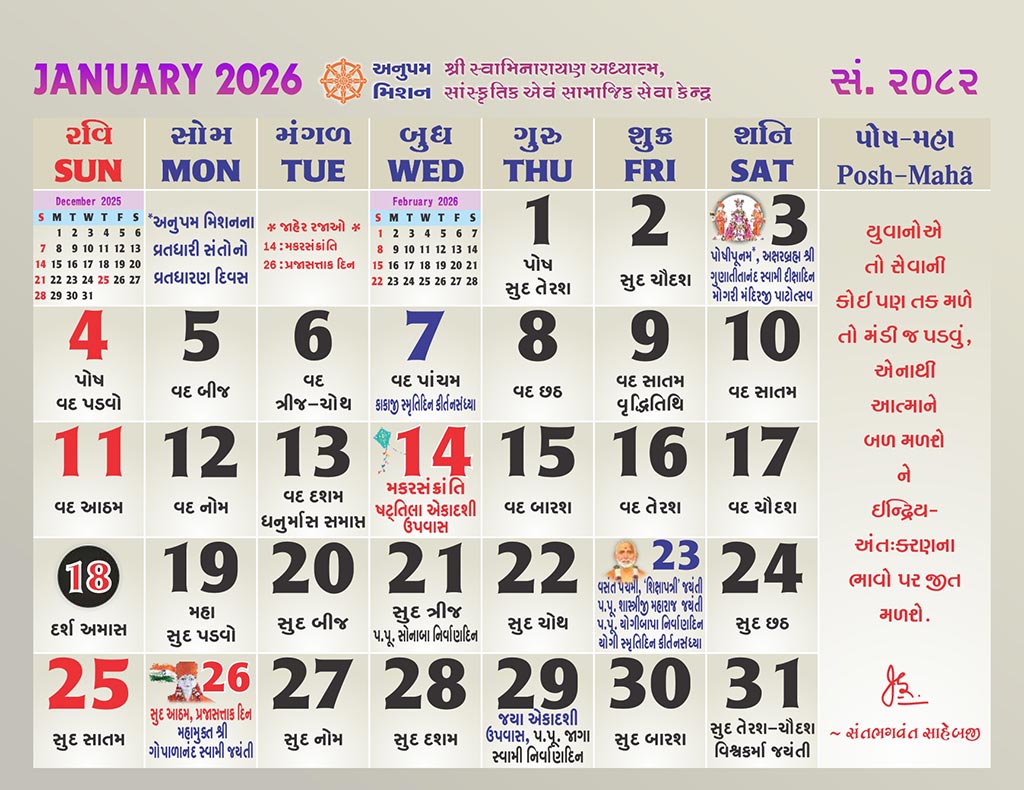 JANUARY 2026
અનુપમ મિશન
શ્રી સ્વામિનારાયણ અધ્યાત્મ,
સાંસ્કૃતિક એવં સામાજિક સેવા કેન્દ્ર
સં. ૨૦૮૨
રવિ સોમ મંગળ બુધ ગુરુ શુક્ર શનિ પોષ-મહા
SUN MON TUE WED THU FRI SAT Posh-Mahã
December 2025
S M T W T F S
1 2 3 4 5 6
7 8 9 10 11 12 13
14 15 16 17 18 19 20
21 22 23 24 25 26 27
28 29 30 31
*અનુપમ મિશનના
વ્રતધારી સંતોનો
વ્રતધારણ દિવસ
* જાહેર રજાઓ *
14 : મકરસંક્રાંતિ
26 : પ્રજાસત્તાક દિન
February 2026
S M T W T F S
1 2 3 4 5 6 7
8 9 10 11 12 13 14
15 16 17 18 19 20 21
22 23 24 25 26 27 28
1
પોષ
સુદ તેરશ
2
સુદ ચૌદશ
3
પોષીપૂનમ*, અક્ષરબ્રહ્મ શ્રી
ગુણાતીતાનંદ સ્વામી દીક્ષાદિન
મોગરી મંદિરજી પાટોત્સવ
4
પોષ
વદ પડવો
5
વદ બીજ
6
વદ
ત્રીજ-ચોથ
7
વદ પાંચમ
કાકાજી સ્મૃતિદિન કીર્તનસંધ્યા
8
વદ છઠ
9
વદ સાતમ
વૃદ્ધિતિથિ
10
વદ સાતમ
11
વદ આઠમ
12
વદ નોમ
13
વદ દશમ
ધનુર્માસ સમાપ્ત
14
મકરસંક્રાંતિ
ષટ્તિલા એકાદશી
ઉપવાસ
15
વદ બારશ
16
વદ તેરશ
17
વદ ચૌદશ
18
દર્શ અમાસ
19
મહા
સુદ પડવો
20
સુદ બીજ
21
સુદ ત્રીજ
પ.પૂ. સોનાબા નિર્વાણદિન
22
સુદ ચોથ
23
વસંત પંચમી, 'શિક્ષાપત્રી' જયંતી
પ.પૂ. શાસ્ત્રીજી મહારાજ જયંતી
પ.પૂ. યોગીબાપા નિર્વાણદિન
યોગી સ્મૃતિદિન કીર્તનસંધ્યા
24
સુદ છઠ
25
સુદ સાતમ
26
સુદ આઠમ, પ્રજાસત્તાક દિન
મહામુક્ત શ્રી
ગોપાળાનંદ સ્વામી જયંતી
27
સુદ નોમ
28
સુદ દશમ
29
જયા એકાદશી
ઉપવાસ, પ.પૂ. જાગા
સ્વામી નિર્વાણદિન
30
સુદ બારશ
31
સુદ તેરશ-ચૌદશ
વિશ્વકર્મા જયંતી
યુવાનોએ
તો સેવાની
કોઈ પણ તક મળે
તો મંડી જ પડવું,
એનાથી
આત્માને
બળ મળશે
ને
ઈન્દ્રિય-
અંતઃકરણના
ભાવો પર જીત
મળશે.
~ સંતભગવંત સાહેબજી